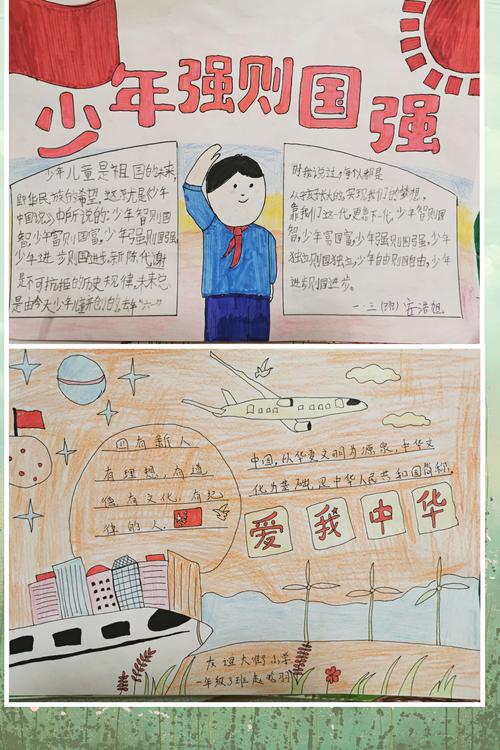 少年强则国强
少年儿童是祖国的未来,
是中华民族的希望。这就是《少年
中国说》中所说的:少年智则国
智,少年富则国富,少年强则国强,
少年进步则国进步。新陈代谢
是不可抗拒的历史规律,未来
是由今天少年儿童开创的。
时我说过:每个人都是
从孩子长大的,实现我们的梦想,
靠我们这一代,更靠下一代。少年智则国
智,少年富国富,少年强则国强,少年
独立则国独立,少年自由则国自由,少年
进步则国进步。
一·三(班)
四有新人
有理想,有道
德有文化,有纪
律的人.
中国,从华夏文明为源泉,中华文
化为基础,是中华人民共和国简称,
爱我中华
友谊大街小学
一年级3班